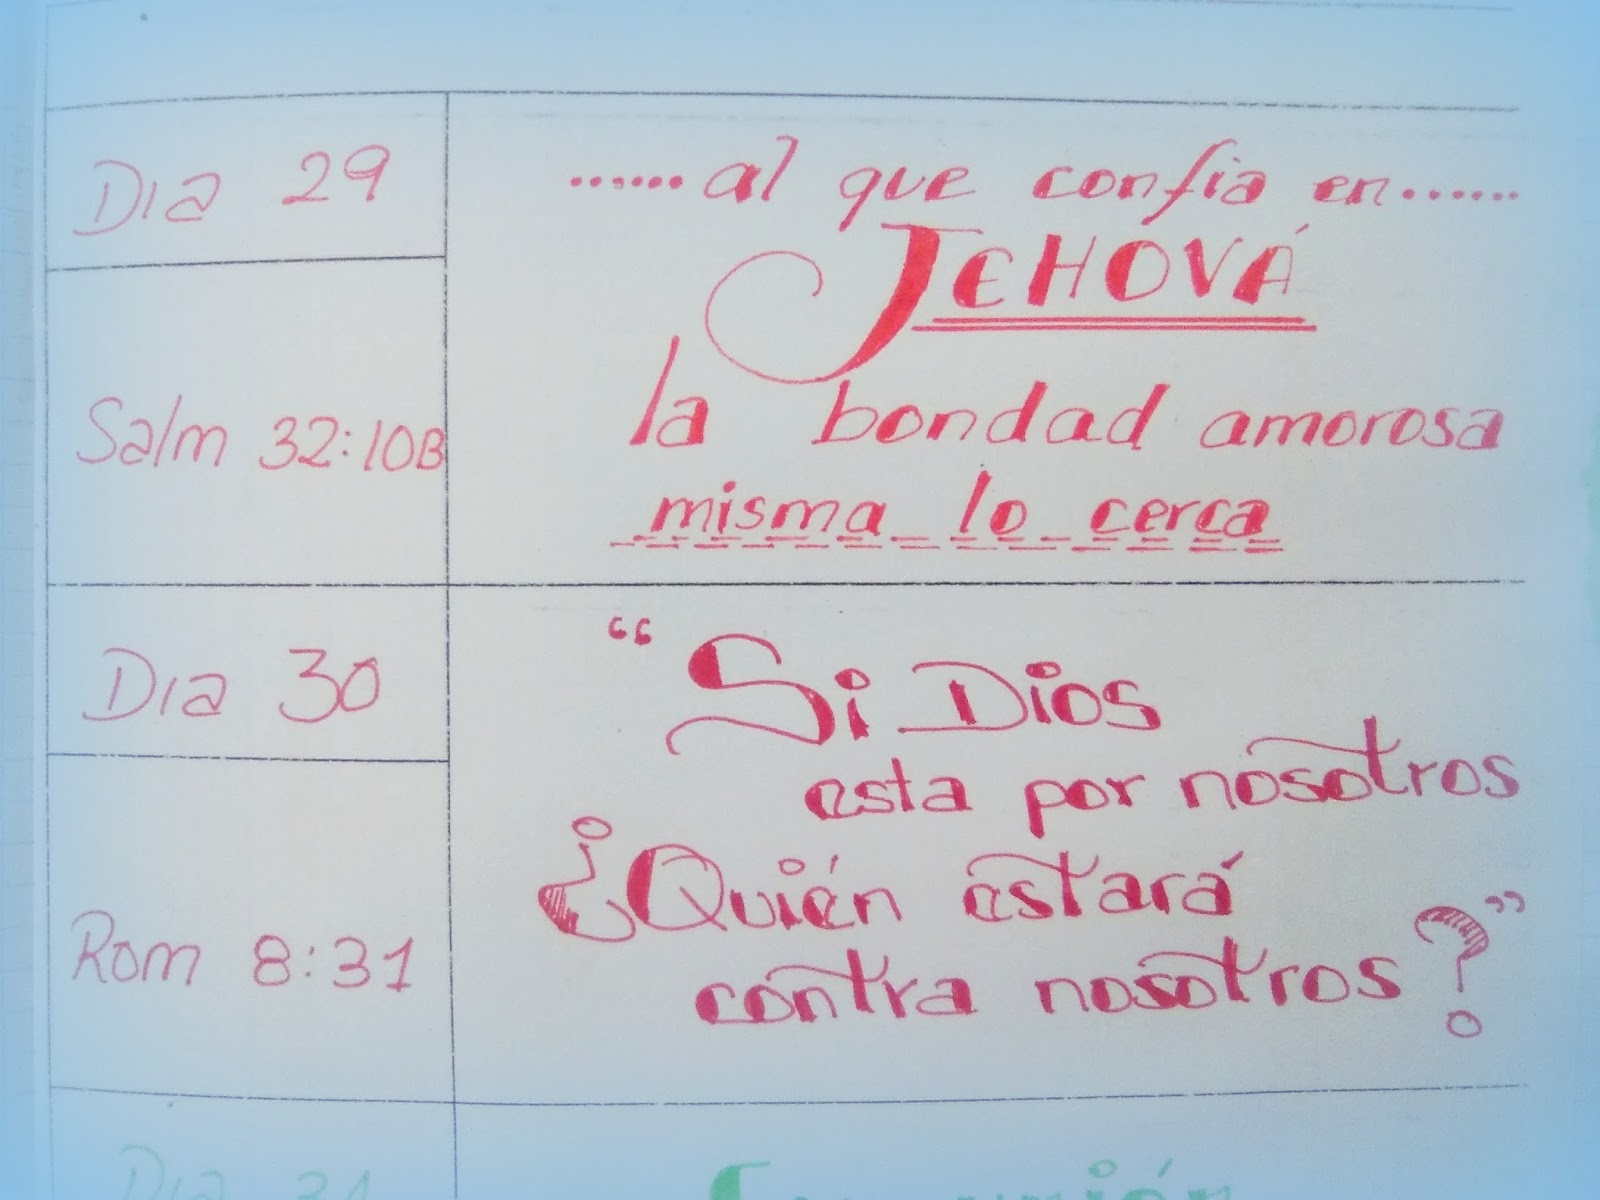 Dia 29
...... al que confia en ......
JEHOVÁ
Salm 32:10B
la bondad amorosa
misma lo cerca
Dia 30
“Si Dios
esta por nosotros
Rom 8:31
¿Quién estará
contra nosotros?”
Dia 31